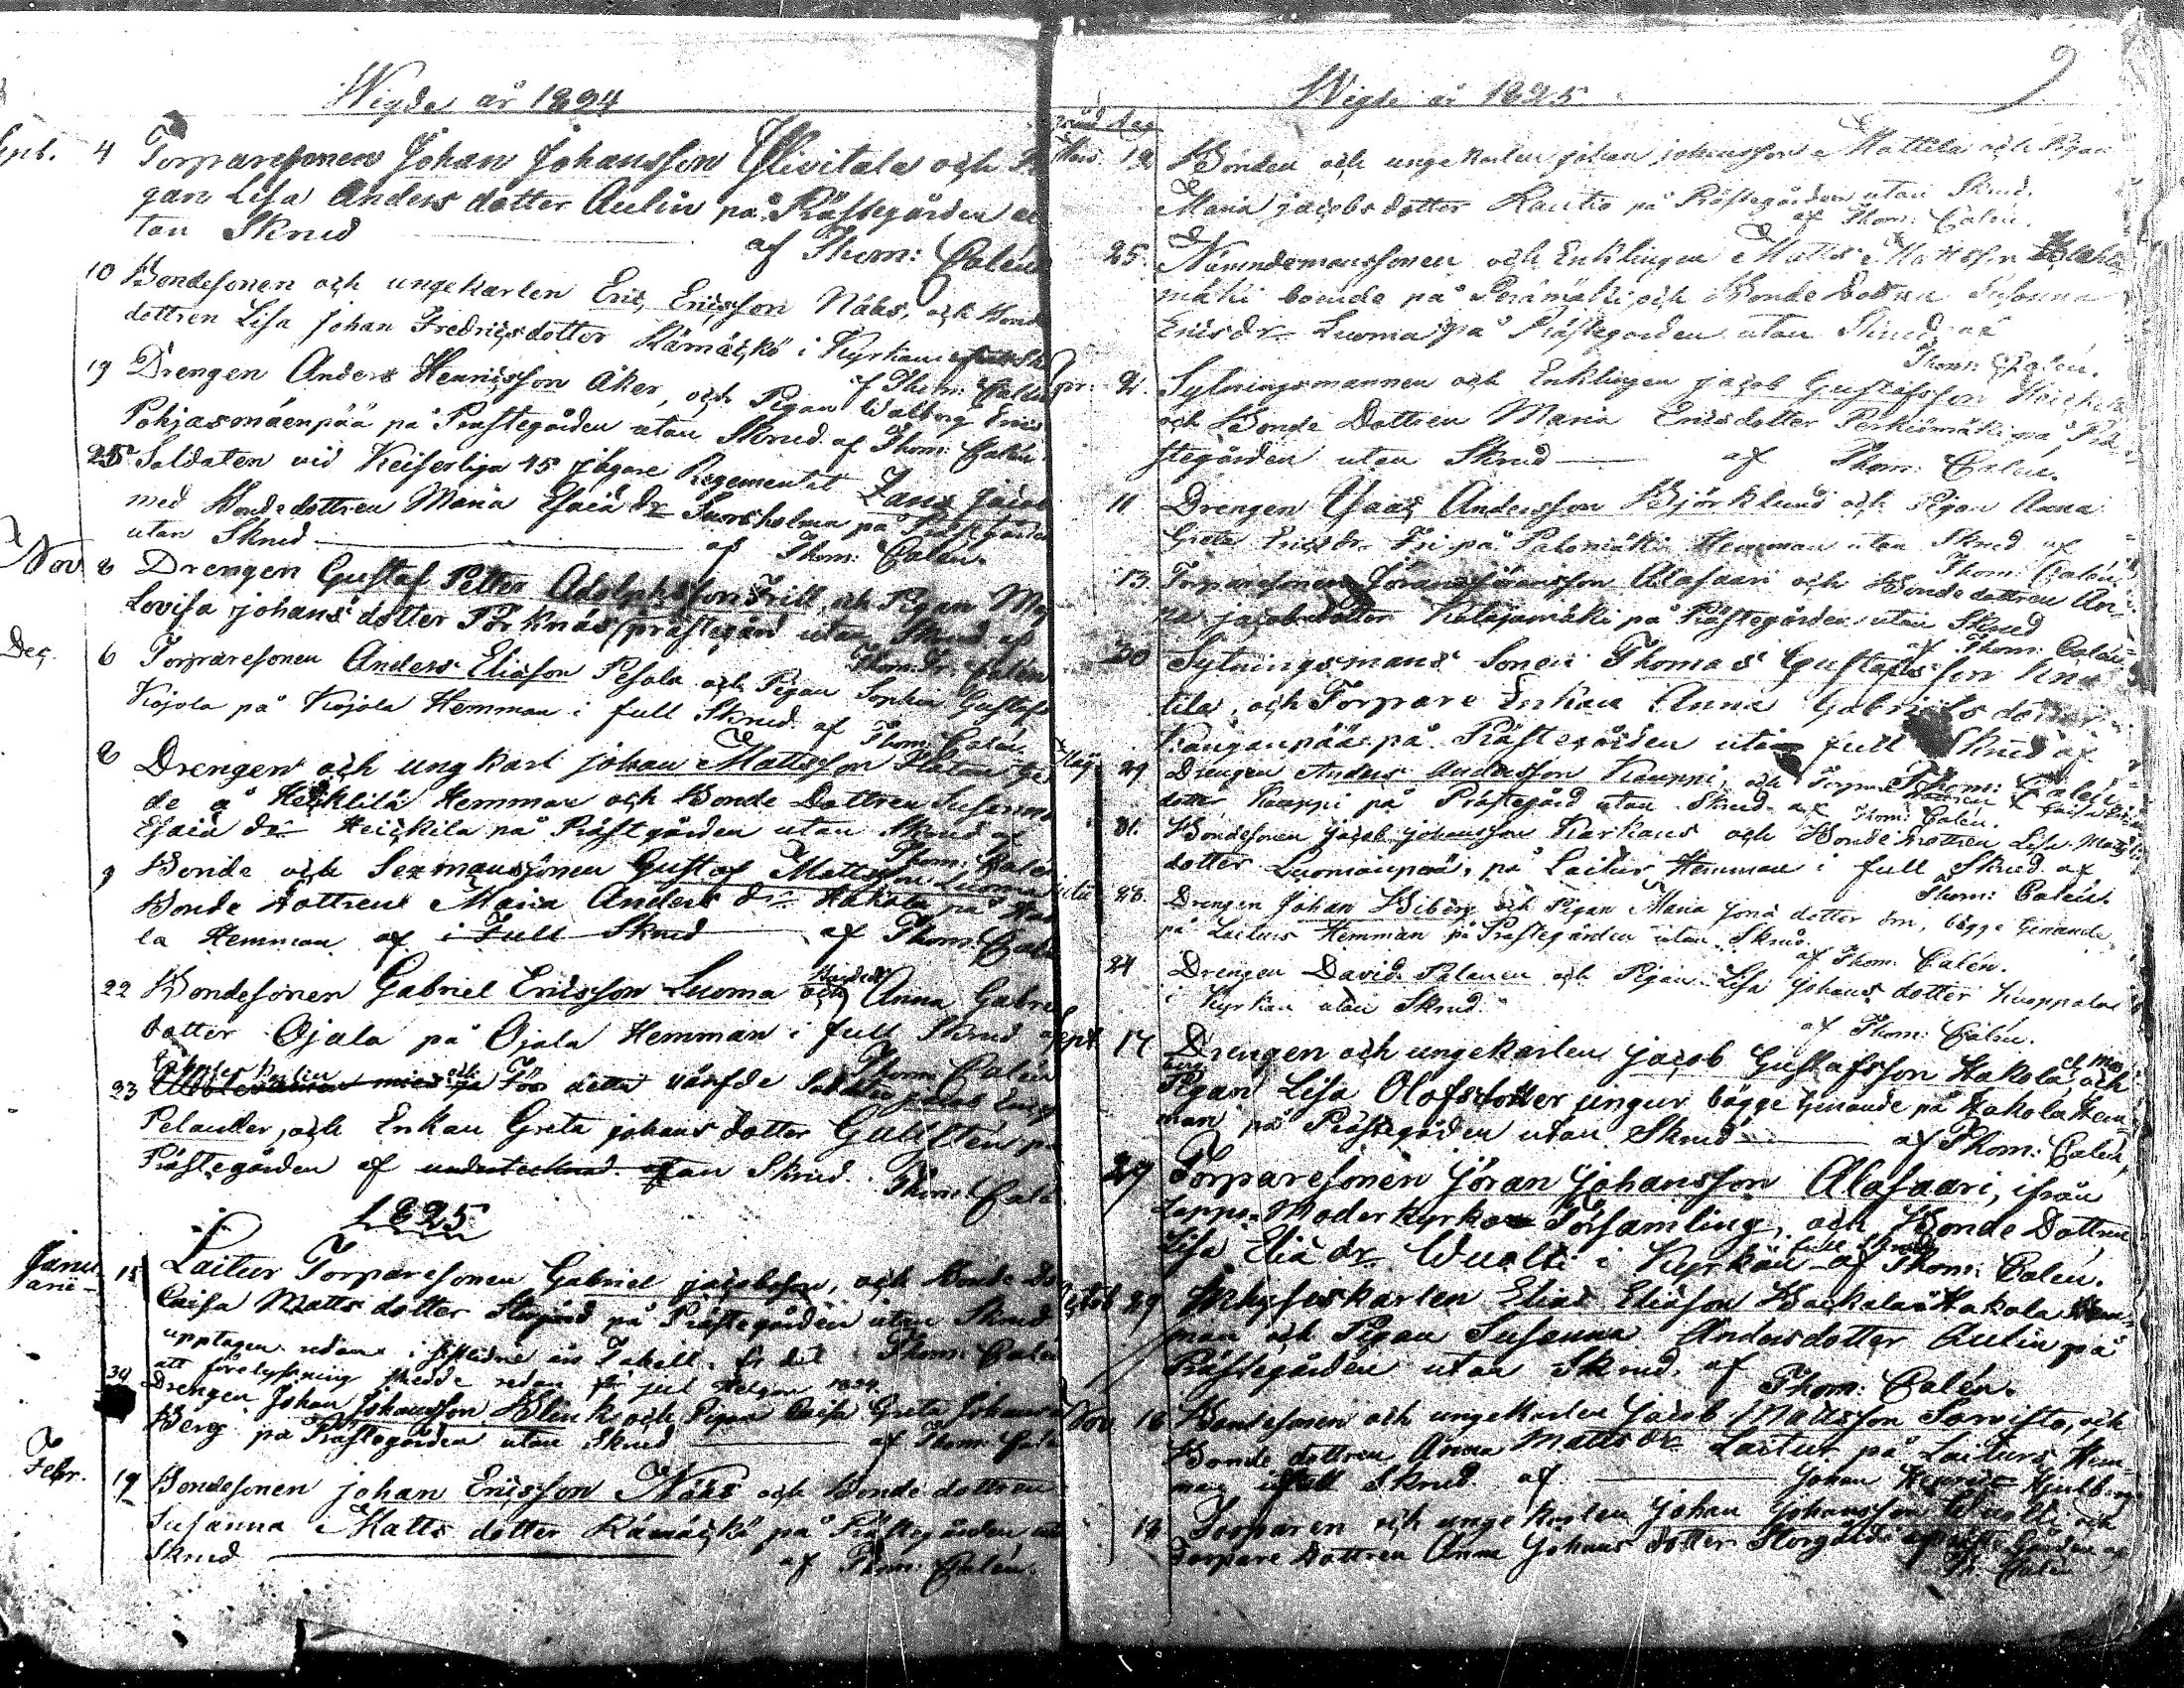 Wigde år 1824
Sept. 4 Torparesonen Johan Johansson Ylivitala och Pi
gan Lisa Anders dotter Aulin på Prästegården u
tan Skrud af Thom: Calén
10 Bondesonen och ungekarlen Eric Ericsson Näks, och Bonde
dottren Lisa Johan Fredricsdotter Rämäckö i Kyrkan
af Thom: Calén
19 Drengen Anders Henricsson Åker, och Pigan Walborg Erics
Pohjasmäenpää på Prästegården utan Skrud af Thom: Calén
25 Soldaten vid Keiserliga 45 Jägare Regementet Zans Jacob
med Bondedottren Maria Esaiæ dr Suorsholma på Prästegården
utan Skrud af Thom: Calén.
Nov 8 Drengen Gustaf Petter Adolphsson Frill, och Pigan
Lovisa Johans dotter Pörknäs prästegård utan Skrud af
Thom: Fr. Calén
Dec. 6 Torparesonen Anders Eliasson Pesola och Pigan Sophia Gustafs
Kojola på Kojola Hemman i full Skrud af Thom: Calén
8 Drengen och ungkarl Johan Mattsson
de å Heickilä Hemman och Bonde Dottren Susanna
Esaiæ dr Heickilä på Prästgården utan Skrud af
Thom: Calén
9 Bonde och Sexmanssonen Gustaf Mattsson Luoma
Bonde Dottren Maria Anders dr Hakola på Hako
la Hemman af i Full Skrud af Thom: Calén
22 Bondesonen Gabriel Ericsson Luoma och Anna Gabriels
dotter Ojala på Ojala Hemman i full Skrud af
Thom: Calén
23 För detta värfde Soldaten Jacob
Pelander, och Enkan Greta Johans dotter Gullsten på
Prästegården af utan Skrud. Thom: Calén
1825
Janu
arii 15 Laitur Torparesonen Gabriel Jacobsson, och Bonde Do
Caisa Matts dotter Storgård på Prästegården utan Skrud
upptagen redan i sistledne års Tabell. Thom: Calén
att förelysning skedde redan för jul Helgen 1824.
30 Drengen Johan Johansson Klinck och Pigan Caisa Greta Johans
Berg på Prästegården utan Skrud af Thom: Calén
Febr. 19 Bondesonen Johan Ericsson Näks och Bonde dottren
Susanna Matts dotter Rämäckö på Prästegården utan
Skrud af Thom: Calén.
9
Wigde år 1825
Mars 12 Bonden och ungekarlen Johan Johansson Mattila och Pigan
Maria Jacobs dotter Rautio på Prästegården utan Skrud.
af Thom: Calén.
25. Nämndemanssonen och Enklingen Matts Mattsson
mäki boende på Perämäki och Bonde Dottren Susanna
Ericsdr Luoma på Prästegården utan Skrud af
Thom: Calén.
Apr: 2. Sytningsmannen och Enklingen Jacob Gustafsson Heickilä
och Bonde Dottren Maria Ericsdotter Perkiömäki på Prä
stegården utan Skrud af Thom: Calén.
11 Drengen Isaac Andersson Björklund och Pigan Anna
Greta Ericsdr Fri på Palomäki Hemman utan Skrud af
Thom: Calén
13. Torparesonen Jöran Johansson Alasaari och Bonde dottren An
na Jacobsdotter Kalajamäki på Prästegården utan Skrud
af Thom: Calén.
20 Sytningsmans Sonen Thomas Gustafsson Knu
tila, och Torpare Enkan Anna Gabriels dotter
Kangaupää på Prästegården full Skrud af
Thom: Calén
Maj 29 Drengen Anders Andersson Kauppi, och Torpare
dotter Kauppi på Prästegård utan Skrud af Thom: Calén.
31. Bondesonen Jacob Johansson Karhaus och Bonde Dottren Lisa Matts
dotter Luomanpää, på Laitur Hemman i full Skrud af
Thom: Calén.
23. Drengen Johan Wiberg och Pigan Maria Jona dotter Örn, bägge tienande
på Laiturs Hemman på Prästegården utan Skrud.
af Thom: Calén.
24 Drengen David Palanen och Pigan Lisa Johans dotter Kuoppala
i Kyrkan utan Skrud.
af Thom: Calén.
Sept 17 Drengen och ungekarlen Jacob Gustafsson Hakola, och
Pigan Lisa Olofsdotter jungur bägge tienande på Hakola Hem
man på Prästegården utan Skrud af Thom: Calén
27 Torparesonen Jöran Johansson Alasaari, ifrån
Lappo Moderkyrko Församling, och Bonde Dottren
Lisa Eliæ dr Wuolti i Kyrkan full Skrud af Thom: Calén.
Octob 29 Inhyseskarlen Elias Eliasson Backala å Hakola Hem
man och Pigan Susanna Andersdotter Aulin på
Prästegården utan Skrud. af
Thom: Calén.
Nov 16 Bondesonen och ungekarlen Jacob Mattsson Sarvisto, och
Bonde dottren Anna Matts dr Laitur på Laiturs Hem
man i full Skrud af Johan Henric Hjulberg
18 Torparen och unge karlen Johan Johansson Wuolti och
Torpare Dottren Anna Johans dotter Storgård Gården af
Th: Calén